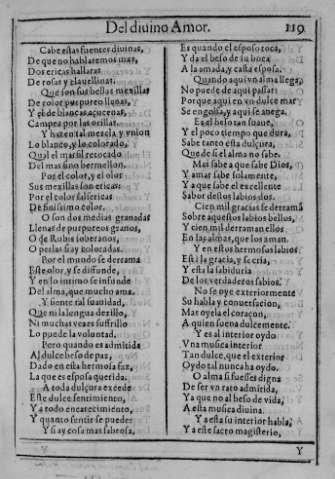 Del diuino Amor. 119
Cabe estas fuentes diuinas,
De que no hablaremos mas,
Dos ericas hallaras
De rosas y clauellinas.
Que son sus bellas mexillas
De color purpureo llenas,
Y el de blancas açucenas,
Campea por las orillas.
Y hazen tal mezcla y vnion
Lo blanco, y lo colorado,
Qual el marfil retocado
Del mas fino bermellon.
Por el color, y el olor
Sus mexillas son ericas:
Por el color
De finissimo color.
O son dos medias granadas
Llenas de purpureos granos,
O de Rubis soberanos,
O perlas si ay coloradas.
Por el mundo se derrama
Este olor, y se diffunde,
Y en lo intimo se infunde
Del alma, que mucho ama.
Y siente tal suauidad,
Que ni la lengua dezillo,
Ni muchas vezes suffrillo
Lo puede la voluntad.
Pero quando es admitida
Al dulce beso de paz,
Dado en esta hermosa faz,
La que es esposa querida:
A toda dulçura excede
Este dulce sentimiento,
Y a todo encarecimiento,
Y quanto sentir se puede:
Y si ay cosa mas sabrosa,
Es quando el esposo toca,
Y da el beso de su boca
A la amada, y casta esposa.
Quando aqui vn alma llega,
No puede de aqui passar:
Porque aqui en vn dulce mar
Se engolfa, y aqui se anega.
Es el beso tan suaue,
Y el poco tiempo que dura,
Sabe tanto esta dulçura,
Que de si el alma no sabe.
Mas sabe a que sabe Dios,
Y amar sabe solamente,
Y a que sabe el excellente
Sabor destos labios dos.
Cien mil gracias se derramã
Sobre aquestos labios bellos,
Y cien mil derraman ellos
En las almas, que los aman.
Y en estos hermosos labios
Està la gracia, y se cria,
Y esta la sabiduria
De los verdaderos sabios.
No se oye exteriormente
Su habla y conuersacion,
Mas oyela el coraçon,
A quien suena dulcemente.
Y es al interior oydo
Vna musica interior
Tan dulce, que el exterior
Oydo tal nunca ha oydo.
O alma si fuesses digna
De ser vn rato admitida,
Ya que no al beso de vida,
A esta musica diuina.
Y a esta su interior habla,
Y a este sacro magisterio,
Y